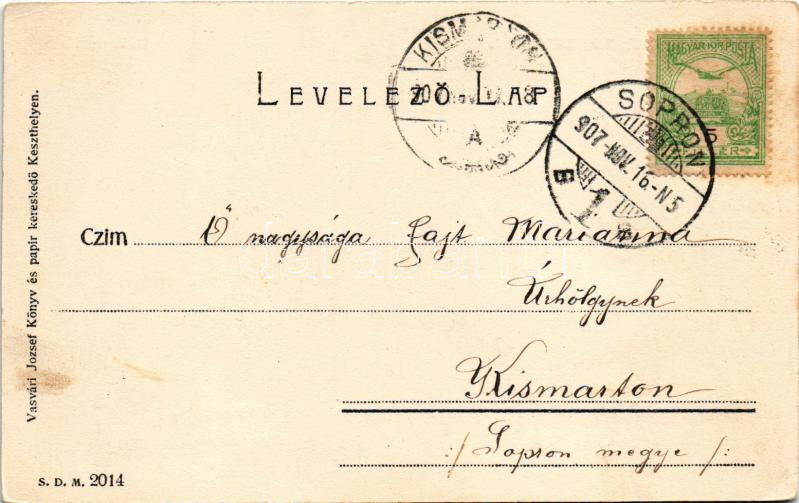 MAGYAR KIR. POSTA
KISMARTON
A
LEVELEZŐ LAP
SOPRON
907 NOV. 16.-N5
B 1
Czim Ő nagysága Gajt Marianna
Úrhölgynek
Kismarton
/: Sopron megye :/
Vasvári Jozsef Könyv és papir kereskedö Keszthelyen.
S. D. M. 2014
darabanth